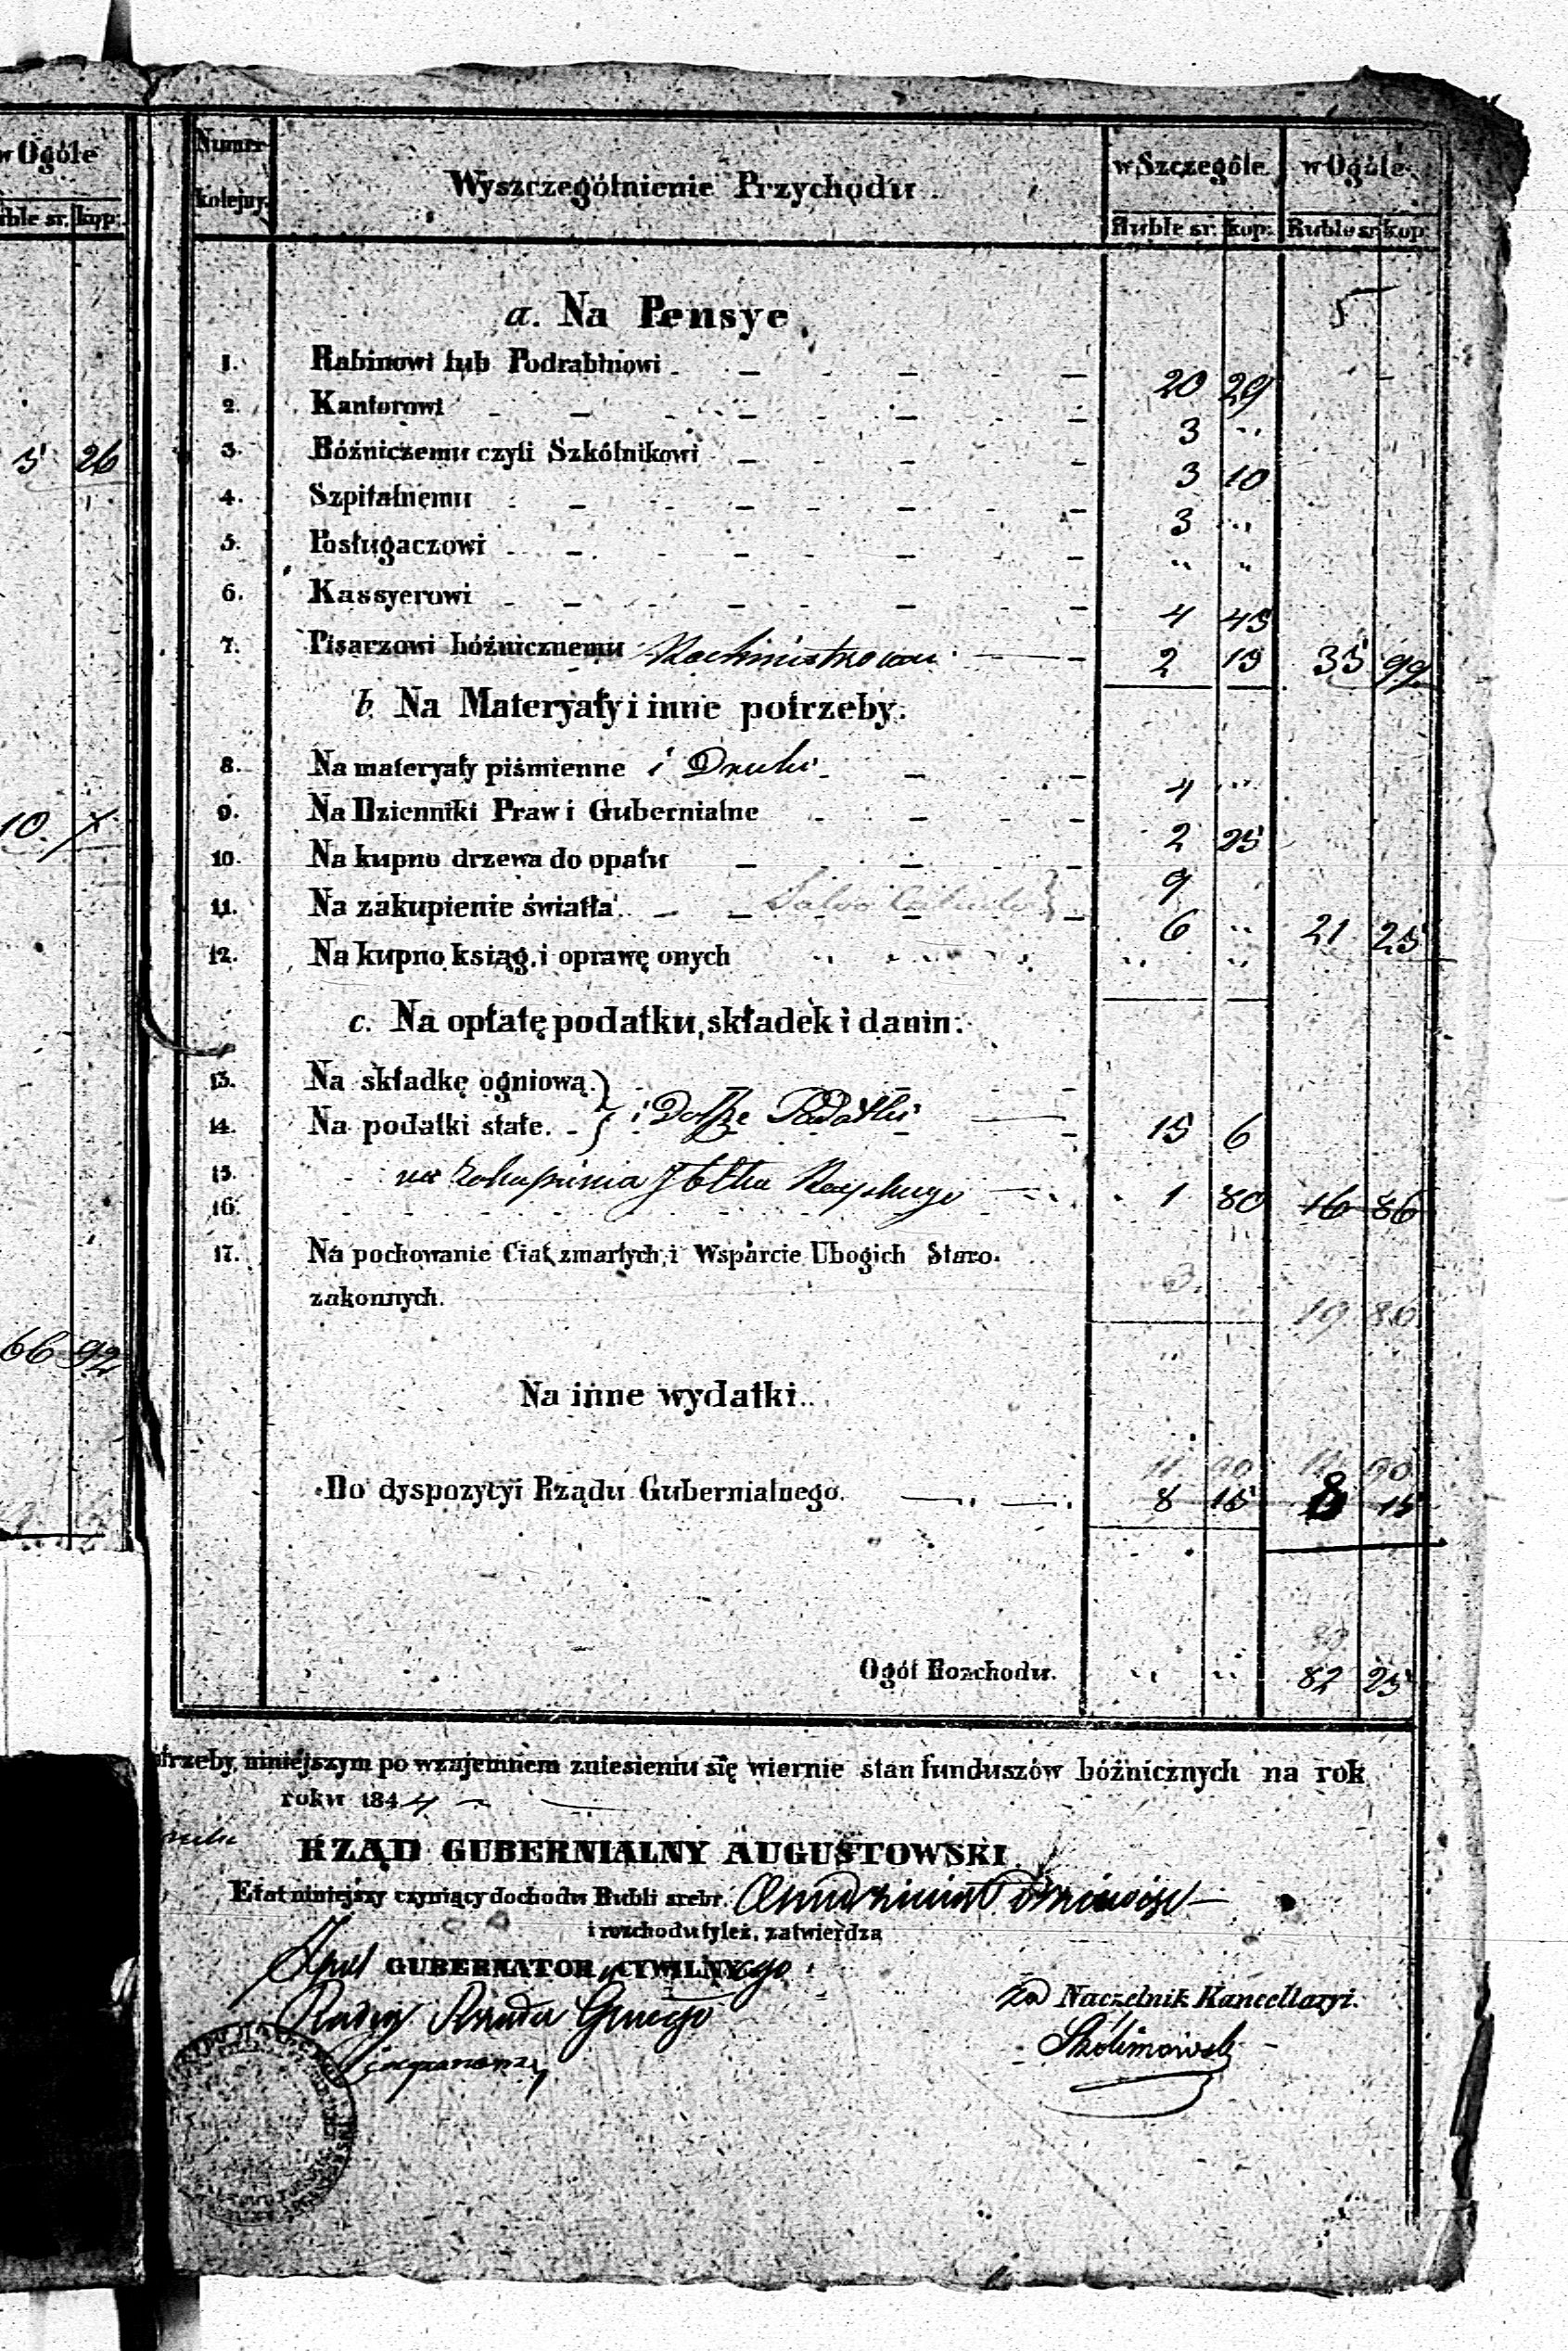 w Ogóle
ble sr. kop:
5 26
10.
66 92
Numer kolejny. Wyszczególnienie Przychodu. w Szczególe w Ogóle
Ruble sr: kop: Ruble sr. kop:
a. Na Pensye.
1. Rabinowi lub Podrabinowi 20 29
2. Kantorowi 3 "
3. Bóźniczemu czyli Szkólnikowi 3 10
4. Szpitalnemu 3 "
5. Posługaczowi " "
6. Kassyerowi 4 45
7. Pisarzowi bóźnicznemu 2 15 35 99
b. Na Materyały i inne potrzeby.
8. Na materyały piśmienne i Druki 4 "
9. Na Dzienniki Praw i Gubernialne 2 25
10. Na kupno drzewa do opału 9
11. Na zakupienie światła. 6 " 21 25
12. Na kupno ksiąg, i oprawę onych " "
c. Na opłatę podatku, składek i danin:
13. Na składkę ogniową.
14. Na podatki stałe. i Podatki 15 6
15. na 1 80 16 86
16.
17. Na pochowanie Ciał zmarłych, i Wsparcie Ubogich Staro-
zakonnych. 3. 19 86
Na inne wydatki.
Do dyspozycyi Rządu Gubernialnego. 8 15 8 15
Ogół Rozchodu. " " 82 25
trzeby, niniejszym po wzajemnem zniesieniu się wiernie stan funduszów bóźnicznych na rok
roku 1844
RZĄD GUBERNIALNY AUGUSTOWSKI
Etat niniejszy czyniący dochodu Rubli srebr.
i rozchodu tyleż, zatwierdza
GUBERNATOR CYWILNY
za Naczelnik Kancellaryi.
Skolimowski